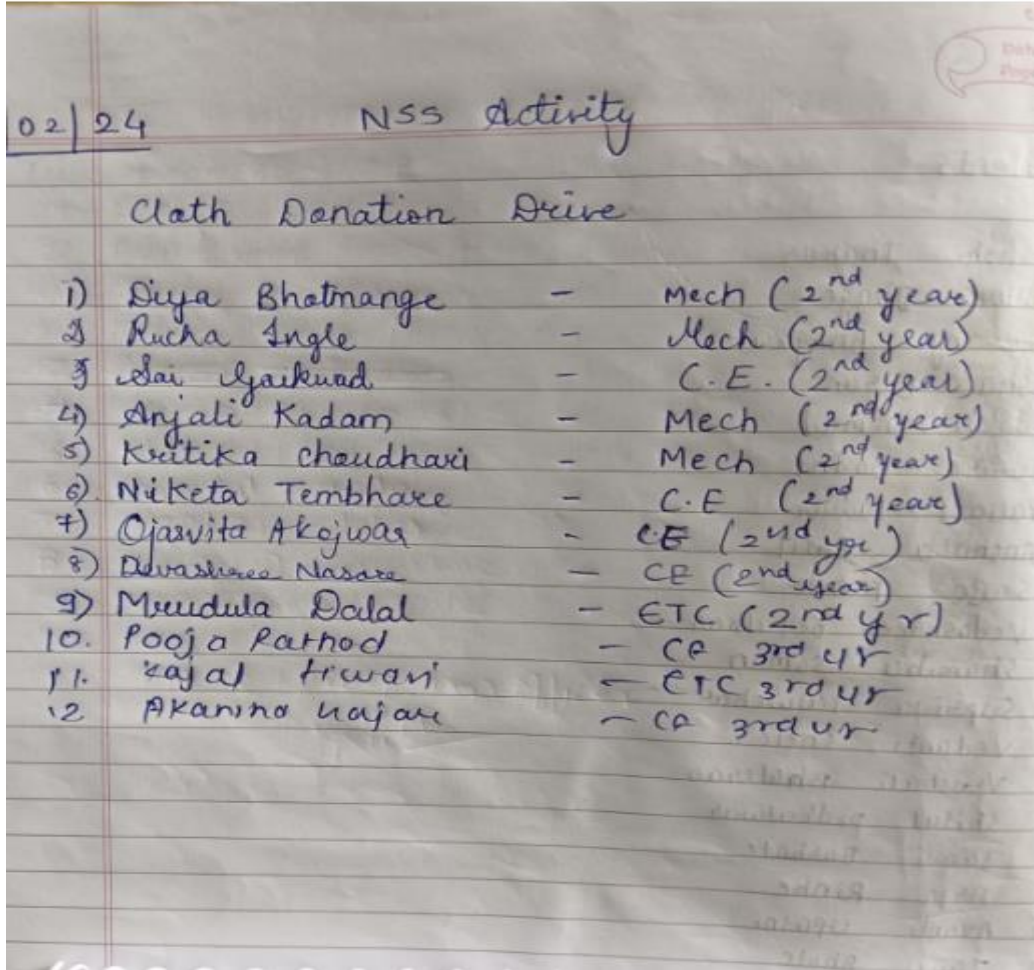 02/24 NSS Activity
Cloth Donation Drive
1) Diya Bhotmange - Mech (2nd year)
2) Rucha Ingle - Mech (2nd year)
3) Sai Gaikwad - C.E. (2nd year)
4) Anjali Kadam - Mech (2nd year)
5) Kritika Chaudhari - Mech (2nd year)
6) Niketa Tembhare - C.E (2nd year)
7) Ojasvita Akojwar - C.E (2nd yr)
8) Devashree Nasare - CE (2nd year)
9) Mrudula Dalal - ETC (2nd yr)
10. Pooja Rathod - CE 3rd yr
11. Kajal tiwari - ETC 3rd yr
12 - CE 3rd yr